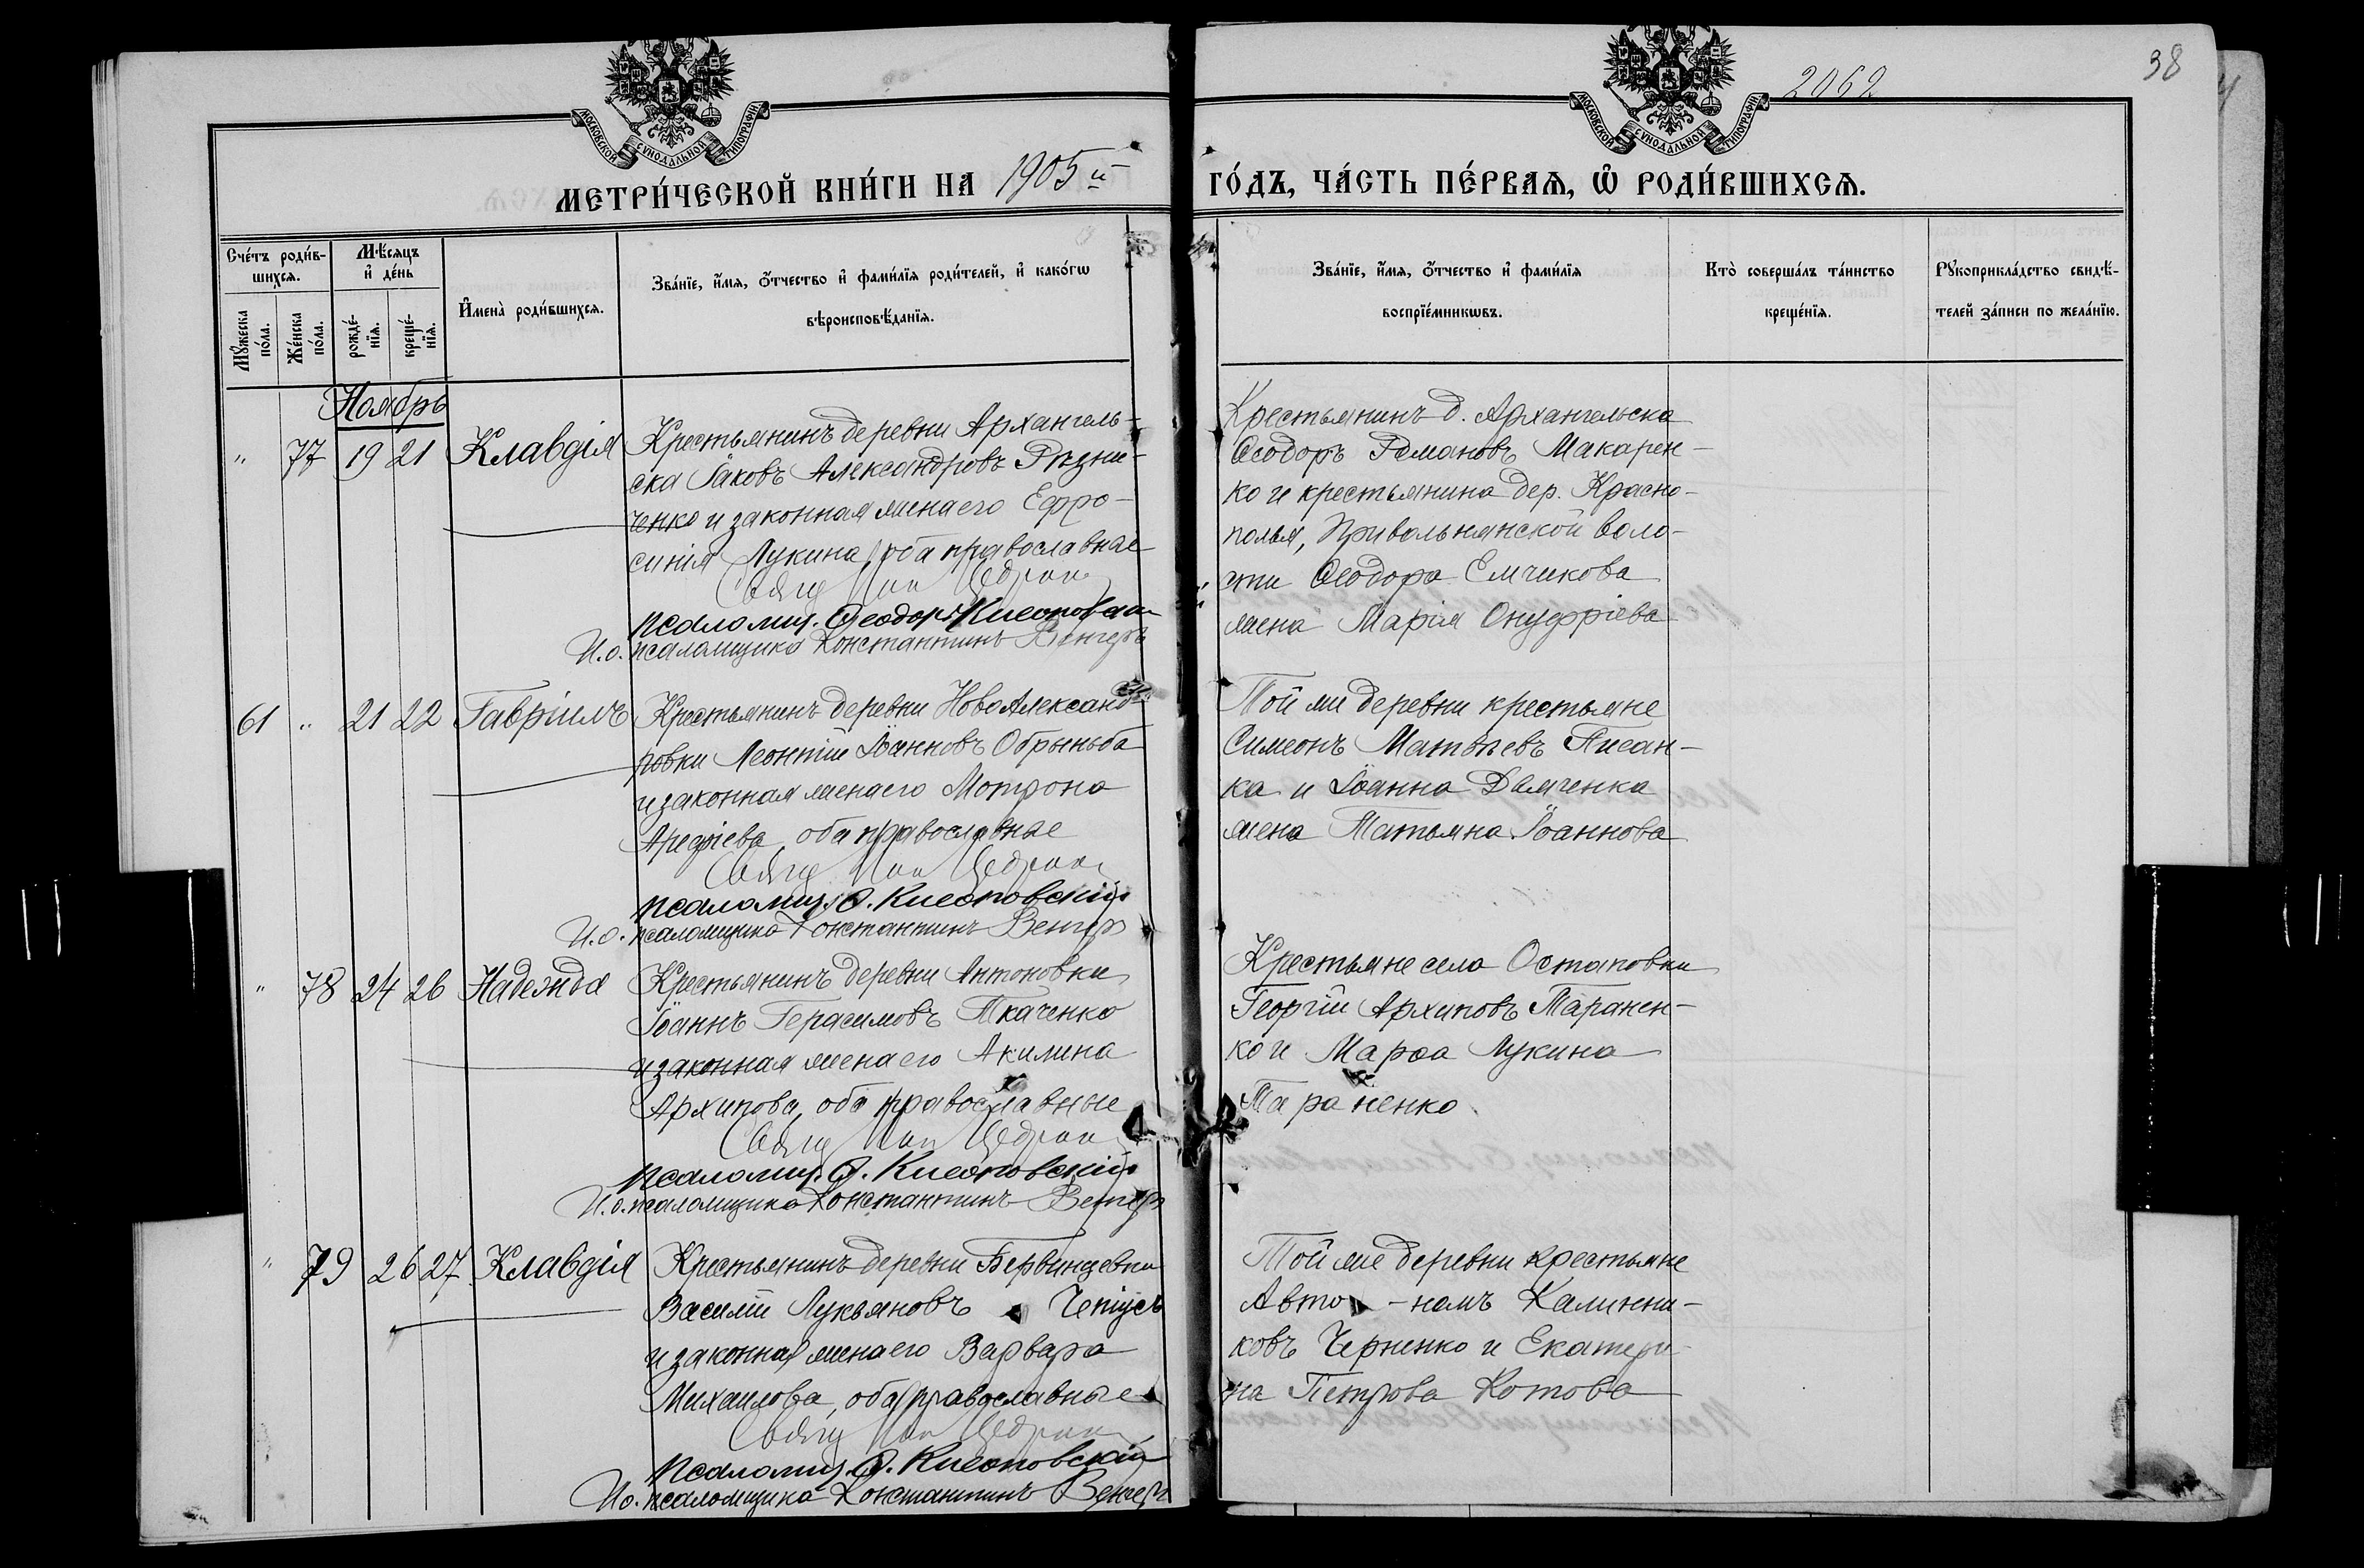 2062
38
МОСКОВСКОЙ СѴНОДАЛЬНОЙ ТИПОГРАФІИ
МОСКОВСКОЙ СѴНОДАЛЬНОЙ ТИПОГРАФІИ
МЕТРИ́ЧЕСКОЙ КНИ́ГИ НА 1905й
ГО́ДЪ, ЧА́СТЬ ПЕ́РВАѦ, Ѽ РОДИ́ВШИХСѦ.
Сче́тъ роди́в-
шихсѧ.
Мꙋ́жеска
по́ла.
Же́нска
по́ла.
Мѣ́сѧцъ
и҆ де́нь
рожде́-
нїѧ.
креще́-
нїѧ.
И҆мена̀ роди́вшихсѧ.
Зва́нїе, и҆́мѧ, ѻ҆́тчество и҆ фами́лїѧ роди́телей, и҆ како́гѡ
вѣроисповѣ́данїѧ.
Зва́нїе, и҆́мѧ, ѻ҆́тчество и҆ фами́лїѧ
воспрїе́мникѡвъ.
Кто̀ соверша́лъ та́инство
креще́нїѧ.
Рꙋкоприкла́дство свидѣ́-
телей за́писи по жела́нїю.
Ноябрь
" 77 19 21 Клавдія
Крестьянинъ деревни Архангель-
ска Іаковъ Александровъ Рѣзни-
ченко и законная жена его Ефро-
синія Лукина, оба православные
Свящ
псаломщ. Ѳеодоръ Кисоповскій
И.о. псаломщика Константинъ Венгеръ
Крестьянинъ д. Архангельска
Ѳеодоръ Романовъ Макарен-
ко и крестьянина дер. Красно-
полья, Привольнянской воло-
сти Ѳеодора Емчикова
жена Марія Онуфріева
61 " 21 22 Гавріилъ
Крестьянинъ деревни НовоАлександ-
ровки Леонтій Іоанновъ Обрыньба
и законная жена его Мотрона
Арефіева, оба православные
Свящ
псаломщ. Ѳ. Кисоповскій
И.о. псаломщика Константинъ Венгер
Той же деревни крестьяне
Симеонъ Матѳѣевъ Писан-
ка и Іоанна Демченка
жена Татьяна Іоаннова
" 78 24 26 Надежда
Крестьянинъ деревни Антоновки
Іоаннъ Герасимовъ Ткаченко
и законная жена его Акилина
Архипова, оба православные
Свящ
псаломщ. Ѳ. Кисоповскій
И.о. псаломщика Константинъ Венгер
Крестьяне села Остаповки
Георгій Архиповъ Таранен-
ко и Марѳа Лукина
Тараненко.
" 79 26 27 Клавдія
Крестьянинъ деревни Бервицевки
Василій Лукьяновъ
и законная жена его Варвара
Михаилова, оба православные
Свящ
псаломщ. Ѳ. Кисоповскій
И.о. псаломщика Константинъ Венгеръ
Той же деревни крестьяне
Авто-номъ Калинни-
ковъ Черненко и Екатери-
на Петрова Котова